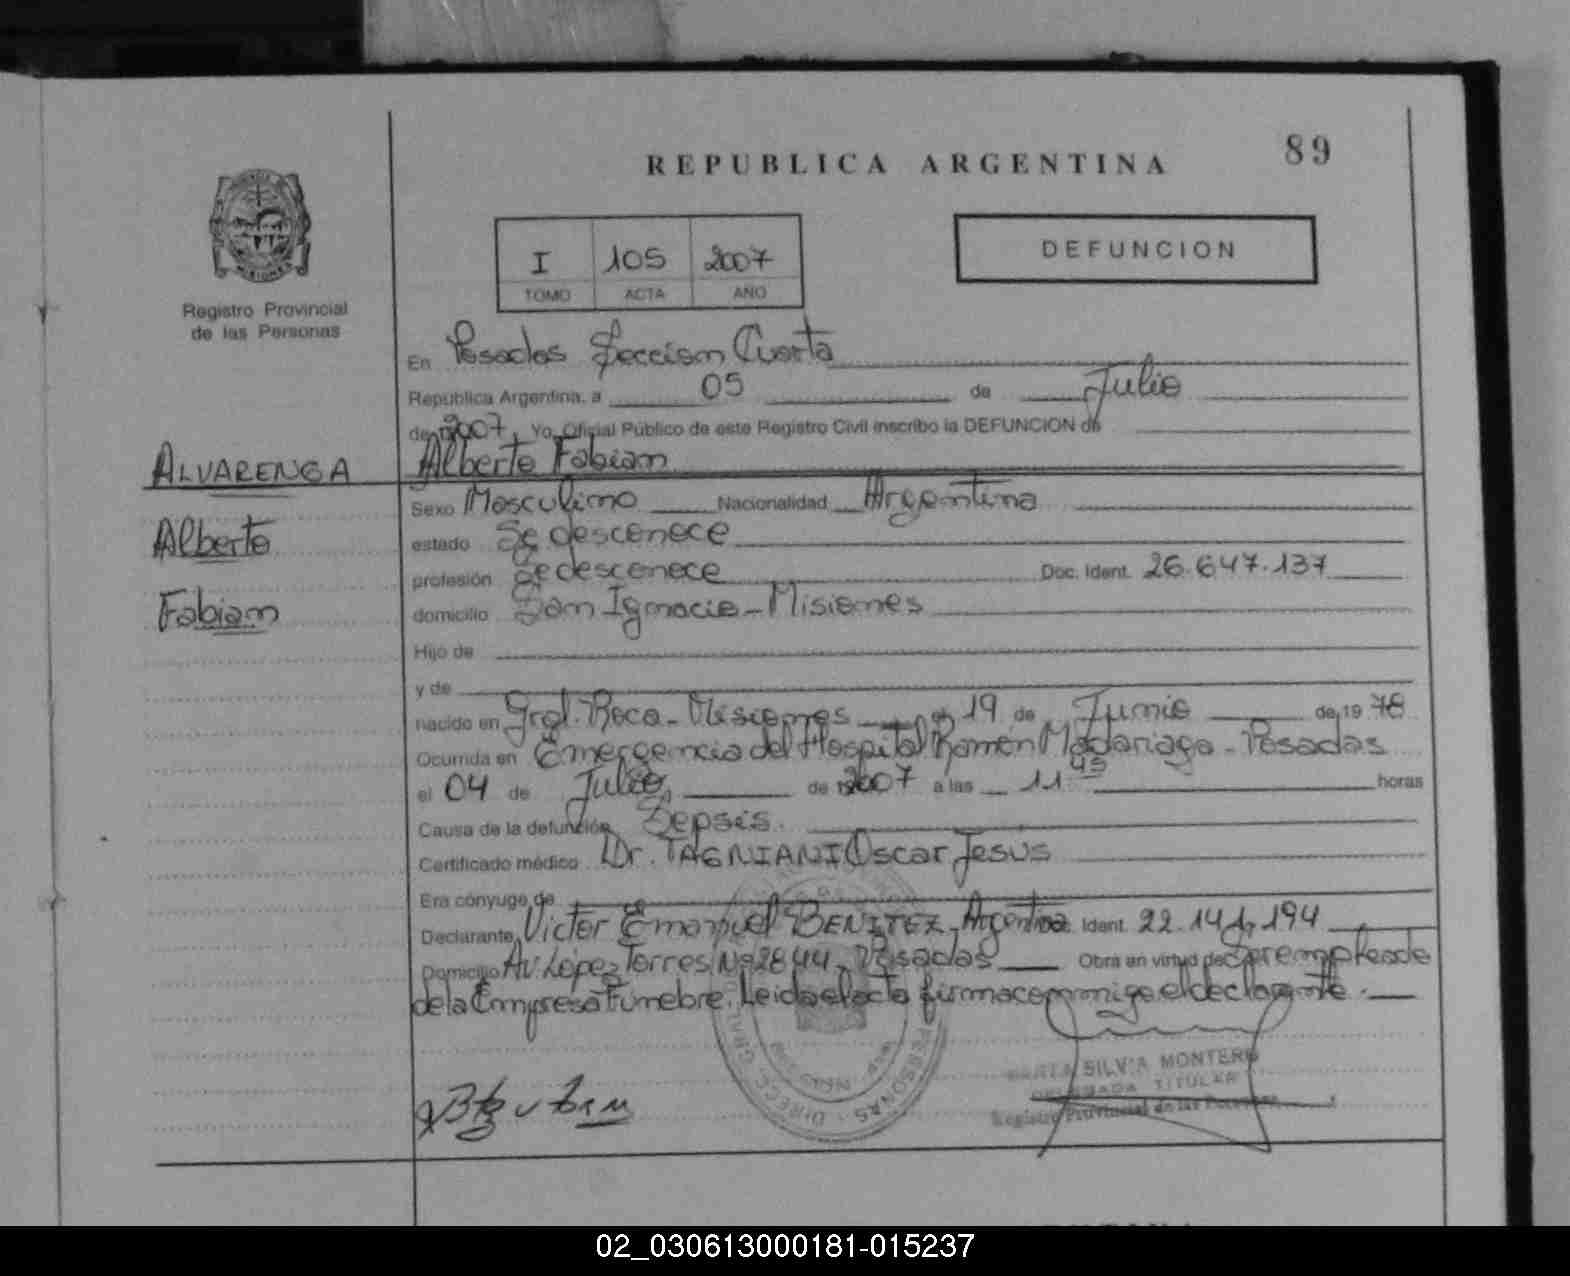 REPUBLICA ARGENTINA
89
I 105 2007
TOMO ACTA AÑO
DEFUNCION
Registro Provincial
de las Personas
En Posadas Seccion Cuarta
Republica Argentina, a 05 de Julio
de 2007, Yo, Oficial Público de este Registro Civil inscribo la DEFUNCION de
ALVARENGA Alberto Fabian
Sexo Masculino Nacionalidad Argentina
Alberto
estado Se desconoce
profesión Se desconoce Doc. Ident. 26.647.137
Fabian
domicilio San Ignacio - Misiones
Hijo de
y de
nacido en Gral. Roca - Misiones el 19 de Junio de 19 78
Ocurrida en Emergencia del Hospital Ramón Madariaga - Posadas
el 04 de Julio de 2007 a las 11 45 horas
Causa de la defunción Sepsis.
Certificado médico Dr. TAGNIANI Oscar Jesus
Era cónyuge de
Declarante Victor Emanuel BENITEZ - Argentino Ident. 22.141.194
Domicilio Av. Lopez Torres Nº 2844 - Posadas Obra en virtud de ser empleado
de la Empresa Funebre. Leida el acta firma conmigo el declarante.
SILVIA MONTERO
TITULAR
Registro Provincial de las Personas
02_030613000181-015237